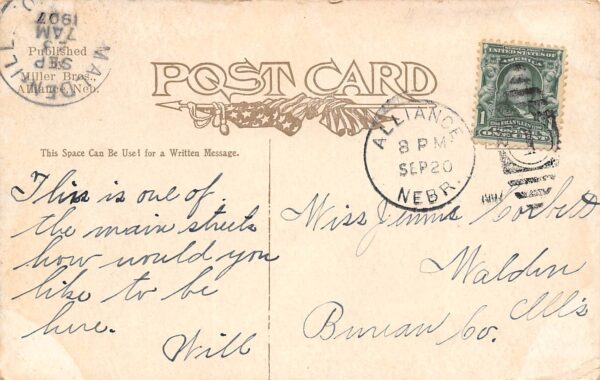 MA
ILL
SEP
7AM
1907
Published
by
Miller Bros.,
Alliance, Neb.
POST CARD
ALLIANCE
8 PM
SEP 20
NEBR.
1
POSTAGE
ONE CENT
This Space Can Be Used for a Written Message.
This is one of
the main streets
how would you
like to be
here.
Will
Miss Jennie Corbett
Maldin
Bureau Co. Ills